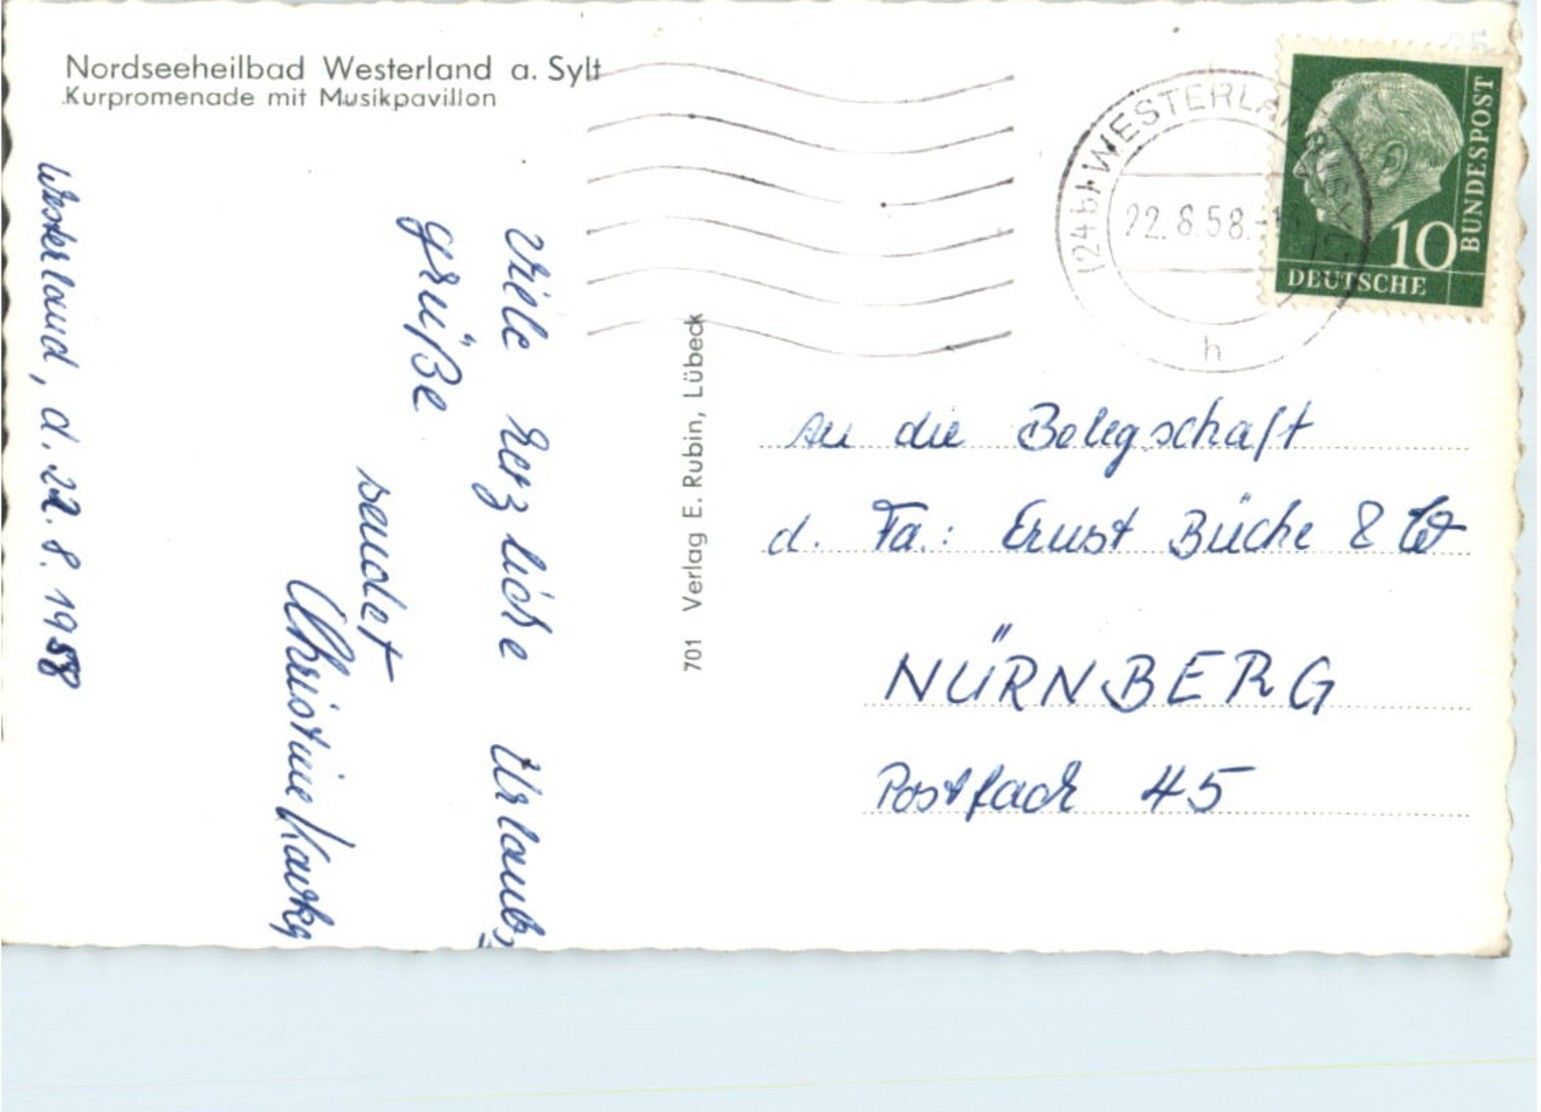 Nordseeheilbad Westerland a. Sylt
Kurpromenade mit Musikpavillon
Westerland, d. 22. 8. 1958
Viele herzliche Urlaubs
grüße
sendet
Christine
701 Verlag E. Rubin, Lübeck
(24b) WESTERLAND
22.8.58.
h
10
BUNDESPOST
DEUTSCHE
An die Belegschaft
d. Fa.: Ernst Büche &
NÜRNBERG
Postfach 45